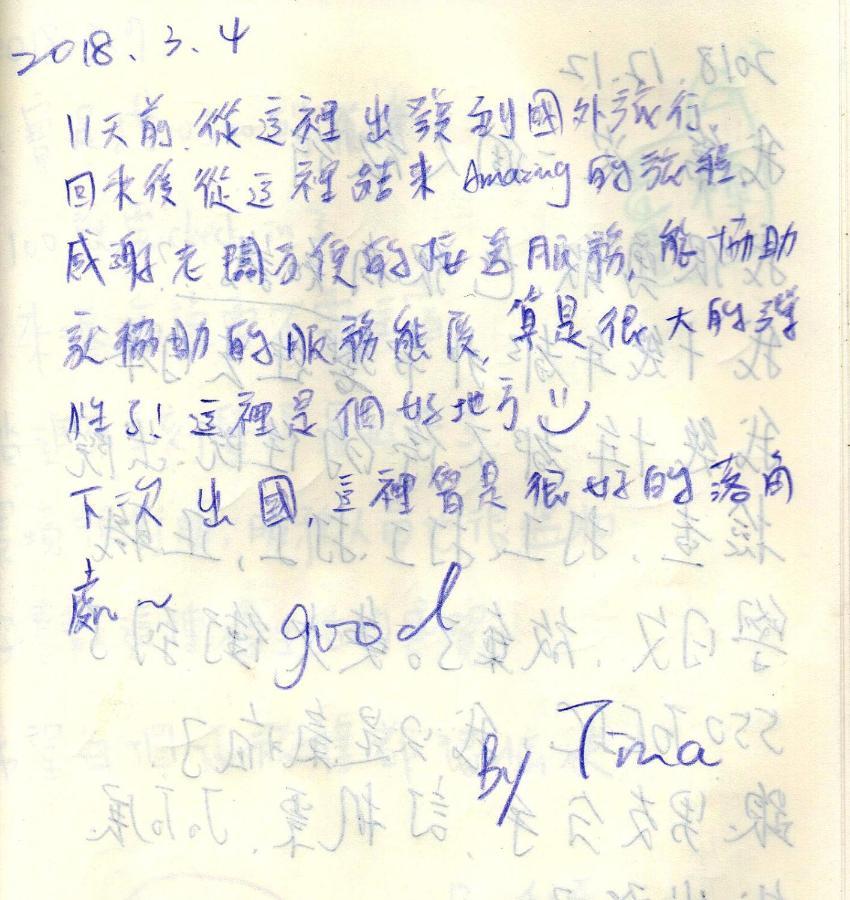 2018.3.4
11天前.從這裡出發到國外旅行.
回來後從這裡結束Amazing的旅程.
感謝老闆方便的接送服務,能協助
就協助的服務態度,算是很大的彈
性了!這裡是個好地方
下次出國,這裡會是很好的落角
處~
good
By Tina